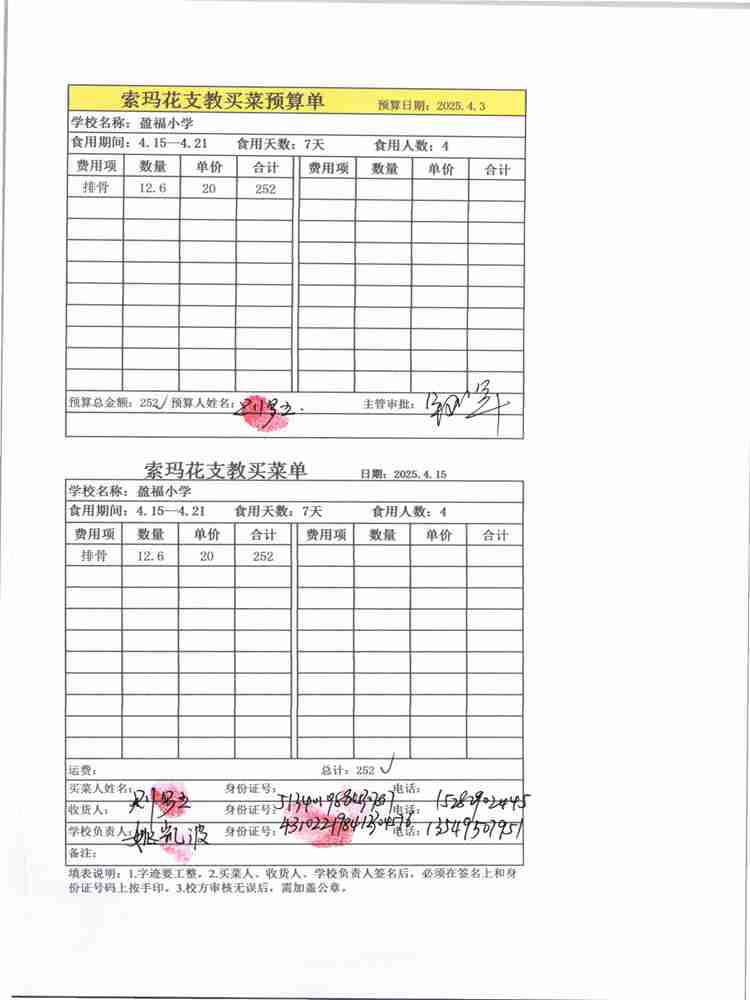 索玛花支教买菜预算单 预算日期：2025.4.3
学校名称：盈福小学
食用期间：4.15—4.21 食用天数：7天 食用人数：4
费用项 数量 单价 合计 费用项 数量 单价 合计
排骨 12.6 20 252
预算总金额：252 预算人姓名： 主管审批：
索玛花支教买菜单 日期：2025.4.15
学校名称：盈福小学
食用期间：4.15—4.21 食用天数：7天 食用人数：4
费用项 数量 单价 合计 费用项 数量 单价 合计
排骨 12.6 20 252
运费： 总计：252
买菜人姓名： 身份证号： 电话：
收货人： 身份证号： 电话：15282902445
学校负责人：姚凯波 身份证号： 电话：13549507951
备注：
填表说明：1.字迹要工整。2.买菜人、收货人、学校负责人签名后，必须在签名上和身
份证号码上按手印。3.校方审核无误后，需加盖公章。